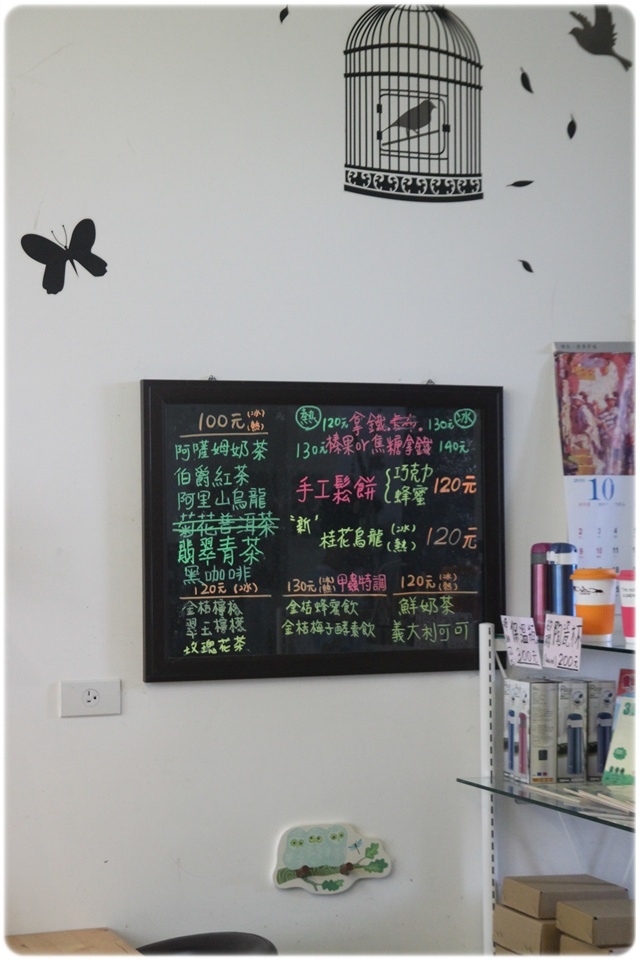 100元(冰)(熱)
阿薩姆奶茶
伯爵紅茶
阿里山烏龍
菊花普洱茶
翡翠青茶
黑咖啡
120元(冰)
金桔檸檬
翠玉檸檬
玫瑰花茶
熱 120元 拿鐵 130元 冰
130元 榛果or焦糖拿鐵 140元
手工鬆餅 巧克力 蜂蜜 120元
"新" 桂花烏龍(冰)(熱) 120元
130元(冰)(熱) 甲蟲特調
金桔蜂蜜飲
金桔梅子酵素飲
120元(冰)(熱)
鮮奶茶
義大利可可
10
保溫
300元
陶瓷杯
200元